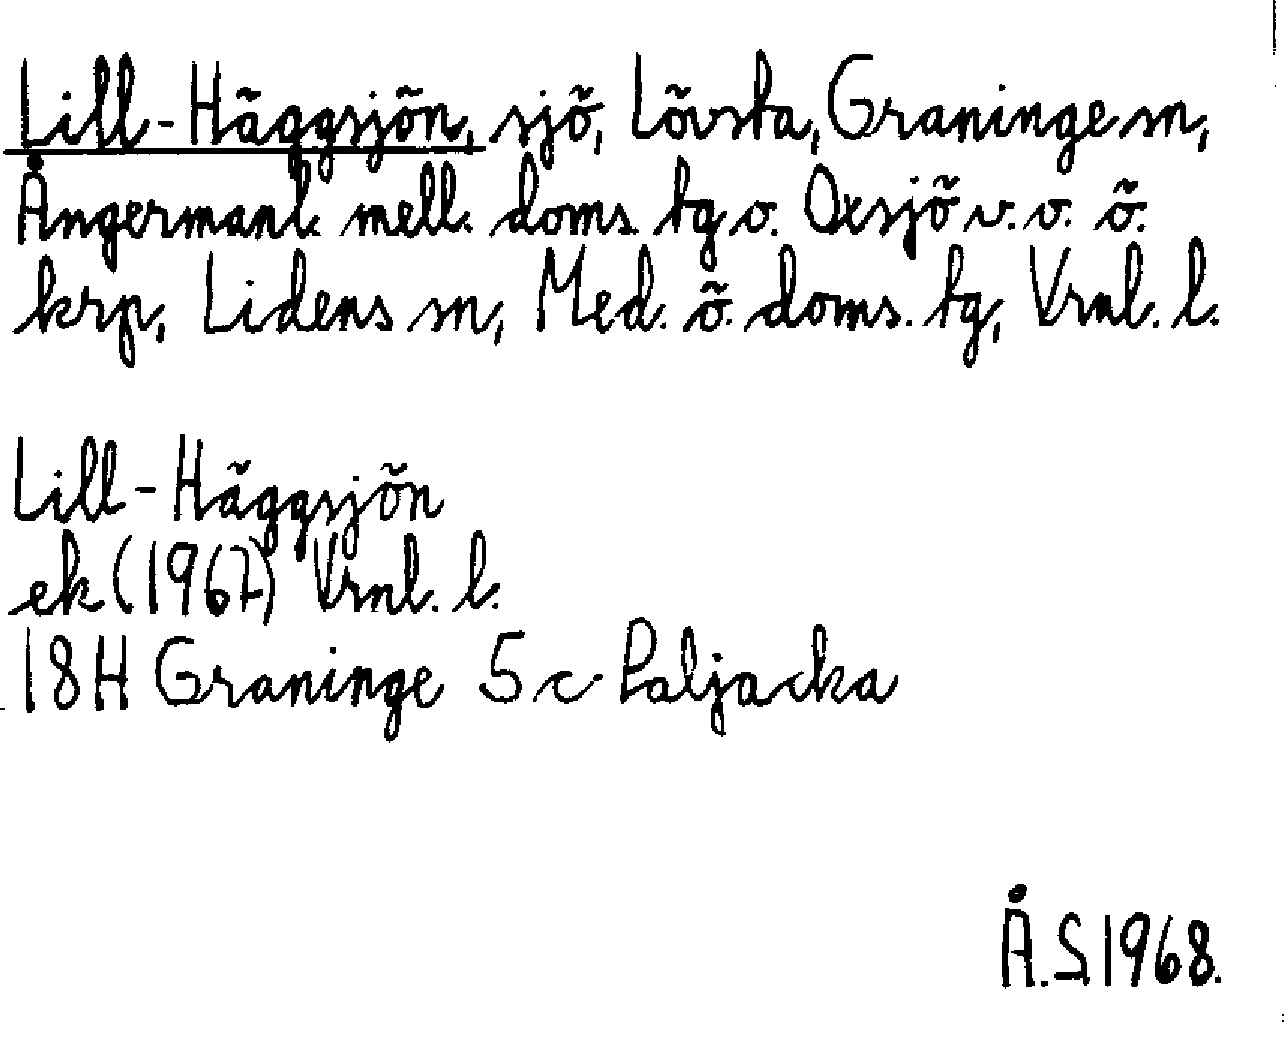 Lill-Häggsjön, sjö, Lövsta, Graninge sn,
Ångermanl. mell. doms. tg o. Oxsjö v. o. ö.
krp, Lidens sn, Med. ö. doms. tg, Vrnl. l.
Lill-Häggsjön
ek (1967) Vrnl. l.
18H Graninge 5c Paljacka
Å.S. 1968.